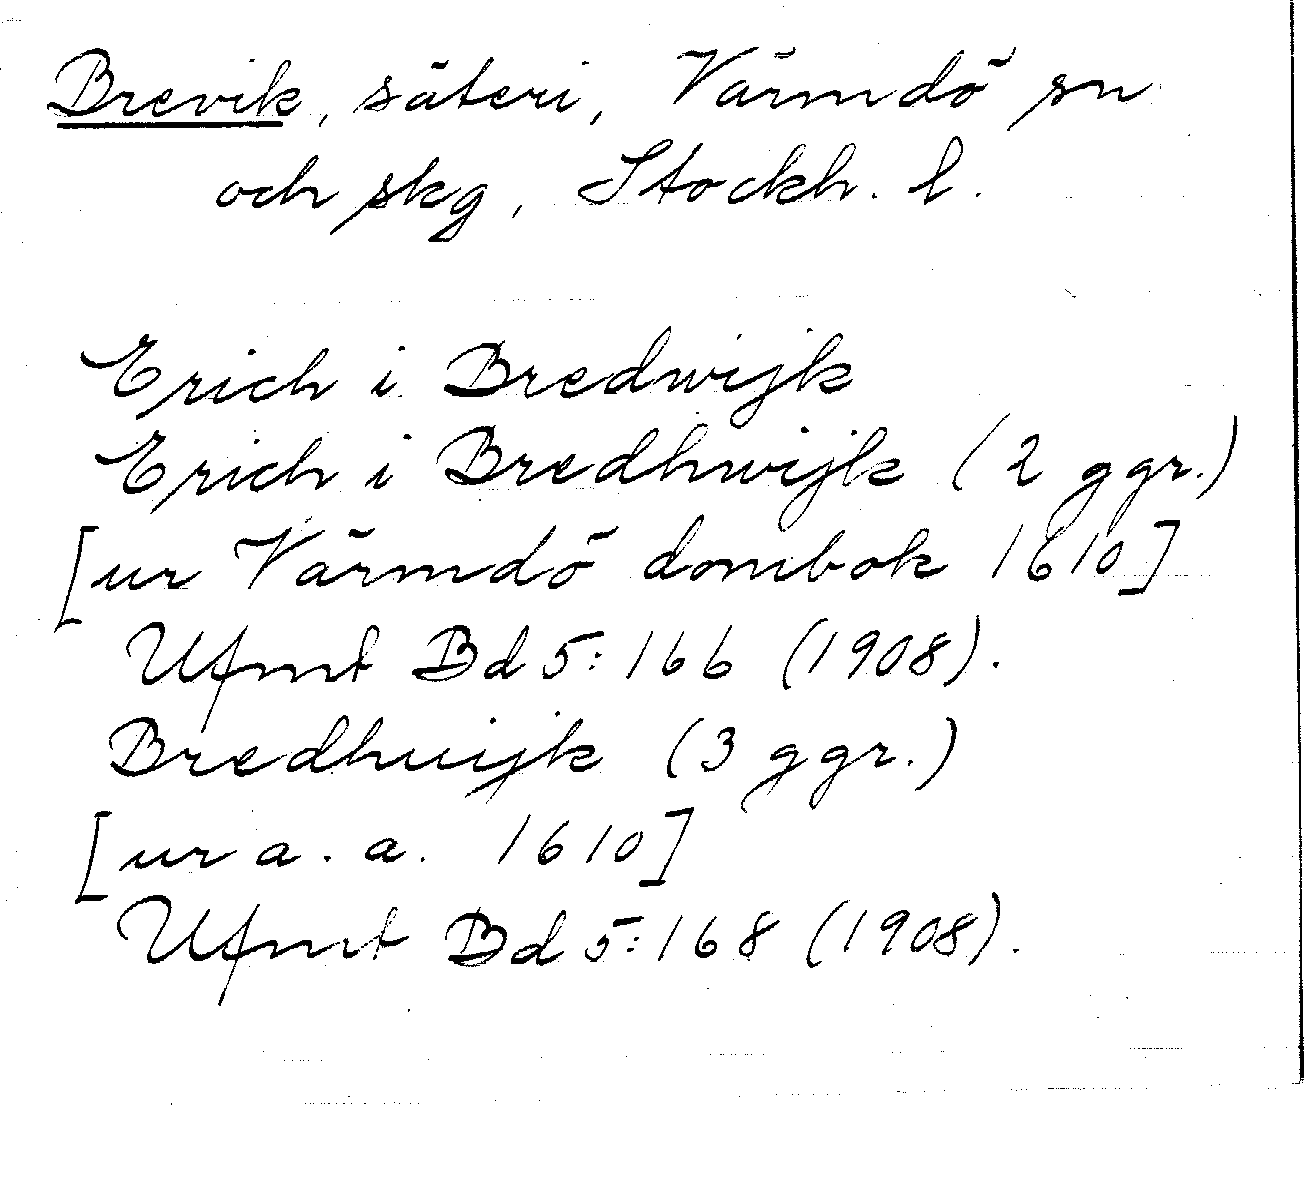 Brevik, säteri, Värmdö sn
och skg, Stockh. l.
Erich i Bredwijk
Erich i Bredhwijk (2 ggr.)
[ur Värmdö dombok 1610]
Ufmt Bd 5:166 (1908).
Bredhuijk (3 ggr.)
[ur a. a. 1610]
Ufmt Bd 5:168 (1908).